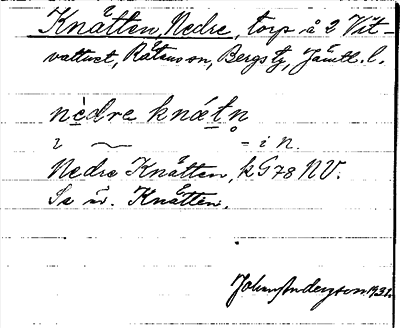 Knåtten, Nedre, torp å 2 Vit-
vattnet, Råtans sn, Bergs tg, Jämtl. l.
nèdre knátn̥
2 ~ = i n.
Nedre Knåtten, kG78 NV.
Se äv. Knåtten.
John Anderzson 1931.